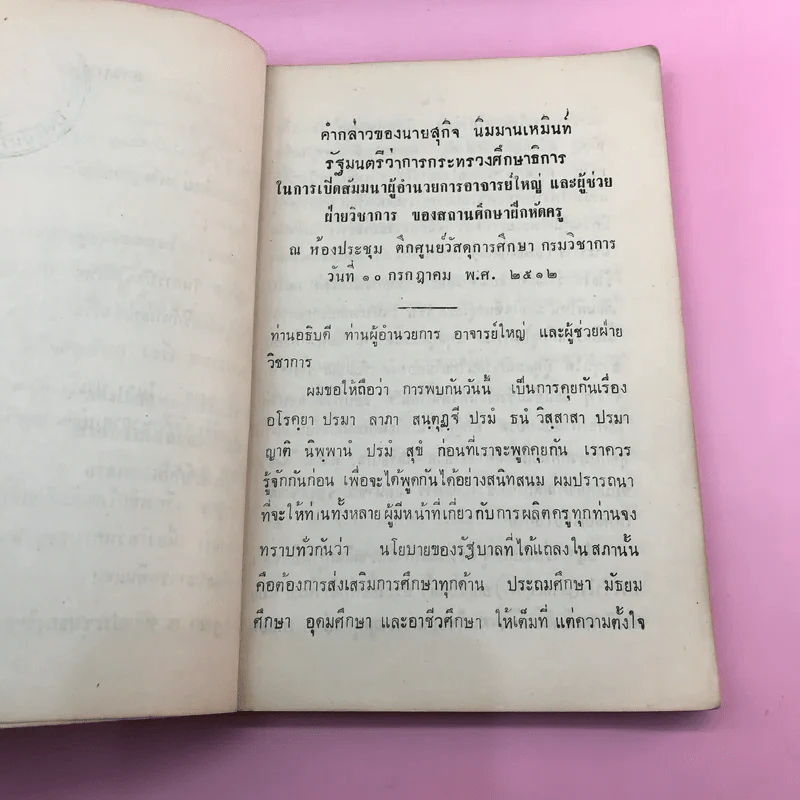 คำกล่าวของนายสุกิจ นิมมานเหมินท์
รัฐมนตรีว่าการกระทรวงศึกษาธิการ
ในการเปิดสัมมนาผู้อำนวยการอาจารย์ใหญ่ และผู้ช่วย
ฝ่ายวิชาการ ของสถานศึกษาฝึกหัดครู
ณ ห้องประชุม ตึกศูนย์วัสดุการศึกษา กรมวิชาการ
วันที่ ๑๐ กรกฎาคม พ.ศ. ๒๕๑๒
ท่านอธิบดี ท่านผู้อำนวยการ อาจารย์ใหญ่ และผู้ช่วยฝ่าย
วิชาการ
ผมขอให้ถือว่า การพบกันวันนี้ เป็นการคุยกันเรื่อง
อโรคฺยา ปรมา ลาภา สนฺตุฏฺฐี ปรมํ ธนํ วิสฺสาสา ปรมา
ญาติ นิพฺพานํ ปรมํ สุขํ ก่อนที่เราจะพูดคุยกัน เราควร
รู้จักกันก่อน เพื่อจะได้พูดกันได้อย่างสนิทสนม ผมปรารถนา
ที่จะให้ท่านทั้งหลาย ผู้มีหน้าที่เกี่ยวกับการผลิตครูทุกท่านจง
ทราบทั่วกันว่า นโยบายของรัฐบาลที่ได้แถลงในสภานั้น
คือต้องการส่งเสริมการศึกษาทุกด้าน ประถมศึกษา มัธยม
ศึกษา อุดมศึกษา และอาชีวศึกษา ให้เต็มที่ แต่ความตั้งใจ